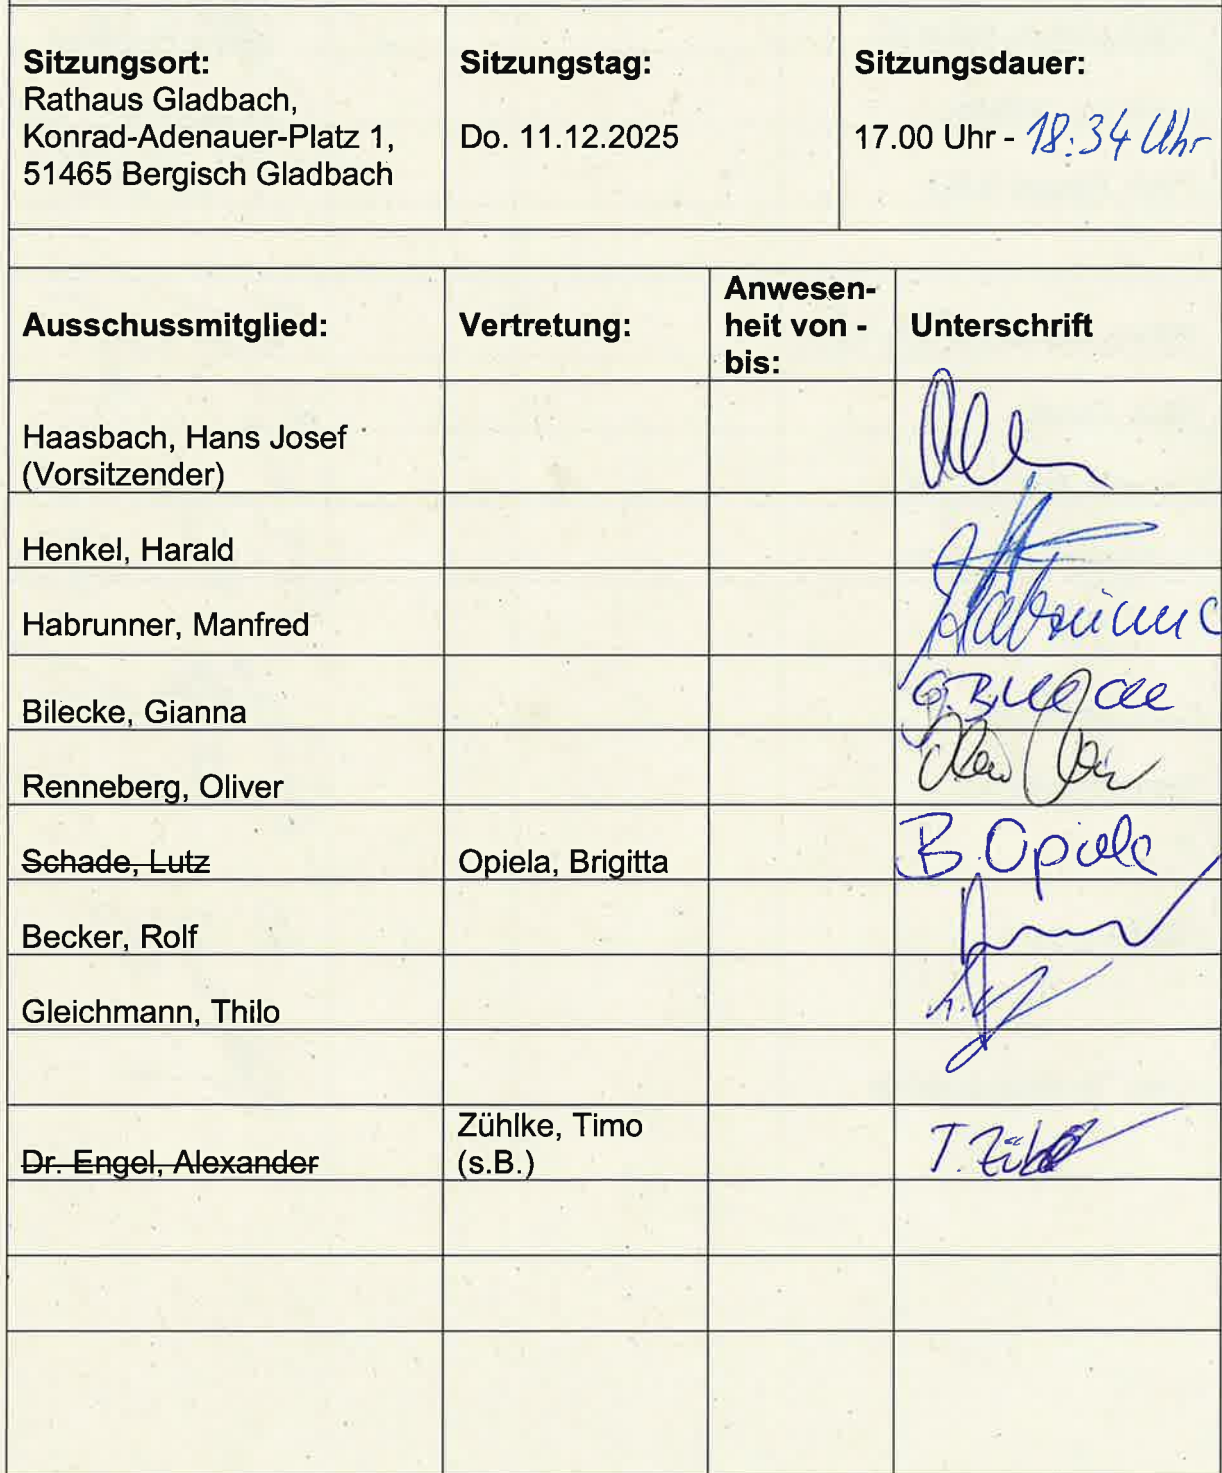 Sitzungsort:
Rathaus Gladbach,
Konrad-Adenauer-Platz 1,
51465 Bergisch Gladbach
Sitzungstag:
Do. 11.12.2025
Sitzungsdauer:
17.00 Uhr - 18:34 Uhr
Ausschussmitglied:
Vertretung:
Anwesen-
heit von -
bis:
Unterschrift
Haasbach, Hans Josef
(Vorsitzender)
Henkel, Harald
Habrunner, Manfred
Bilecke, Gianna
Renneberg, Oliver
Schade, Lutz
Opiela, Brigitta
B. Opiela
Becker, Rolf
Gleichmann, Thilo
Dr. Engel, Alexander
Zühlke, Timo
(s.B.)